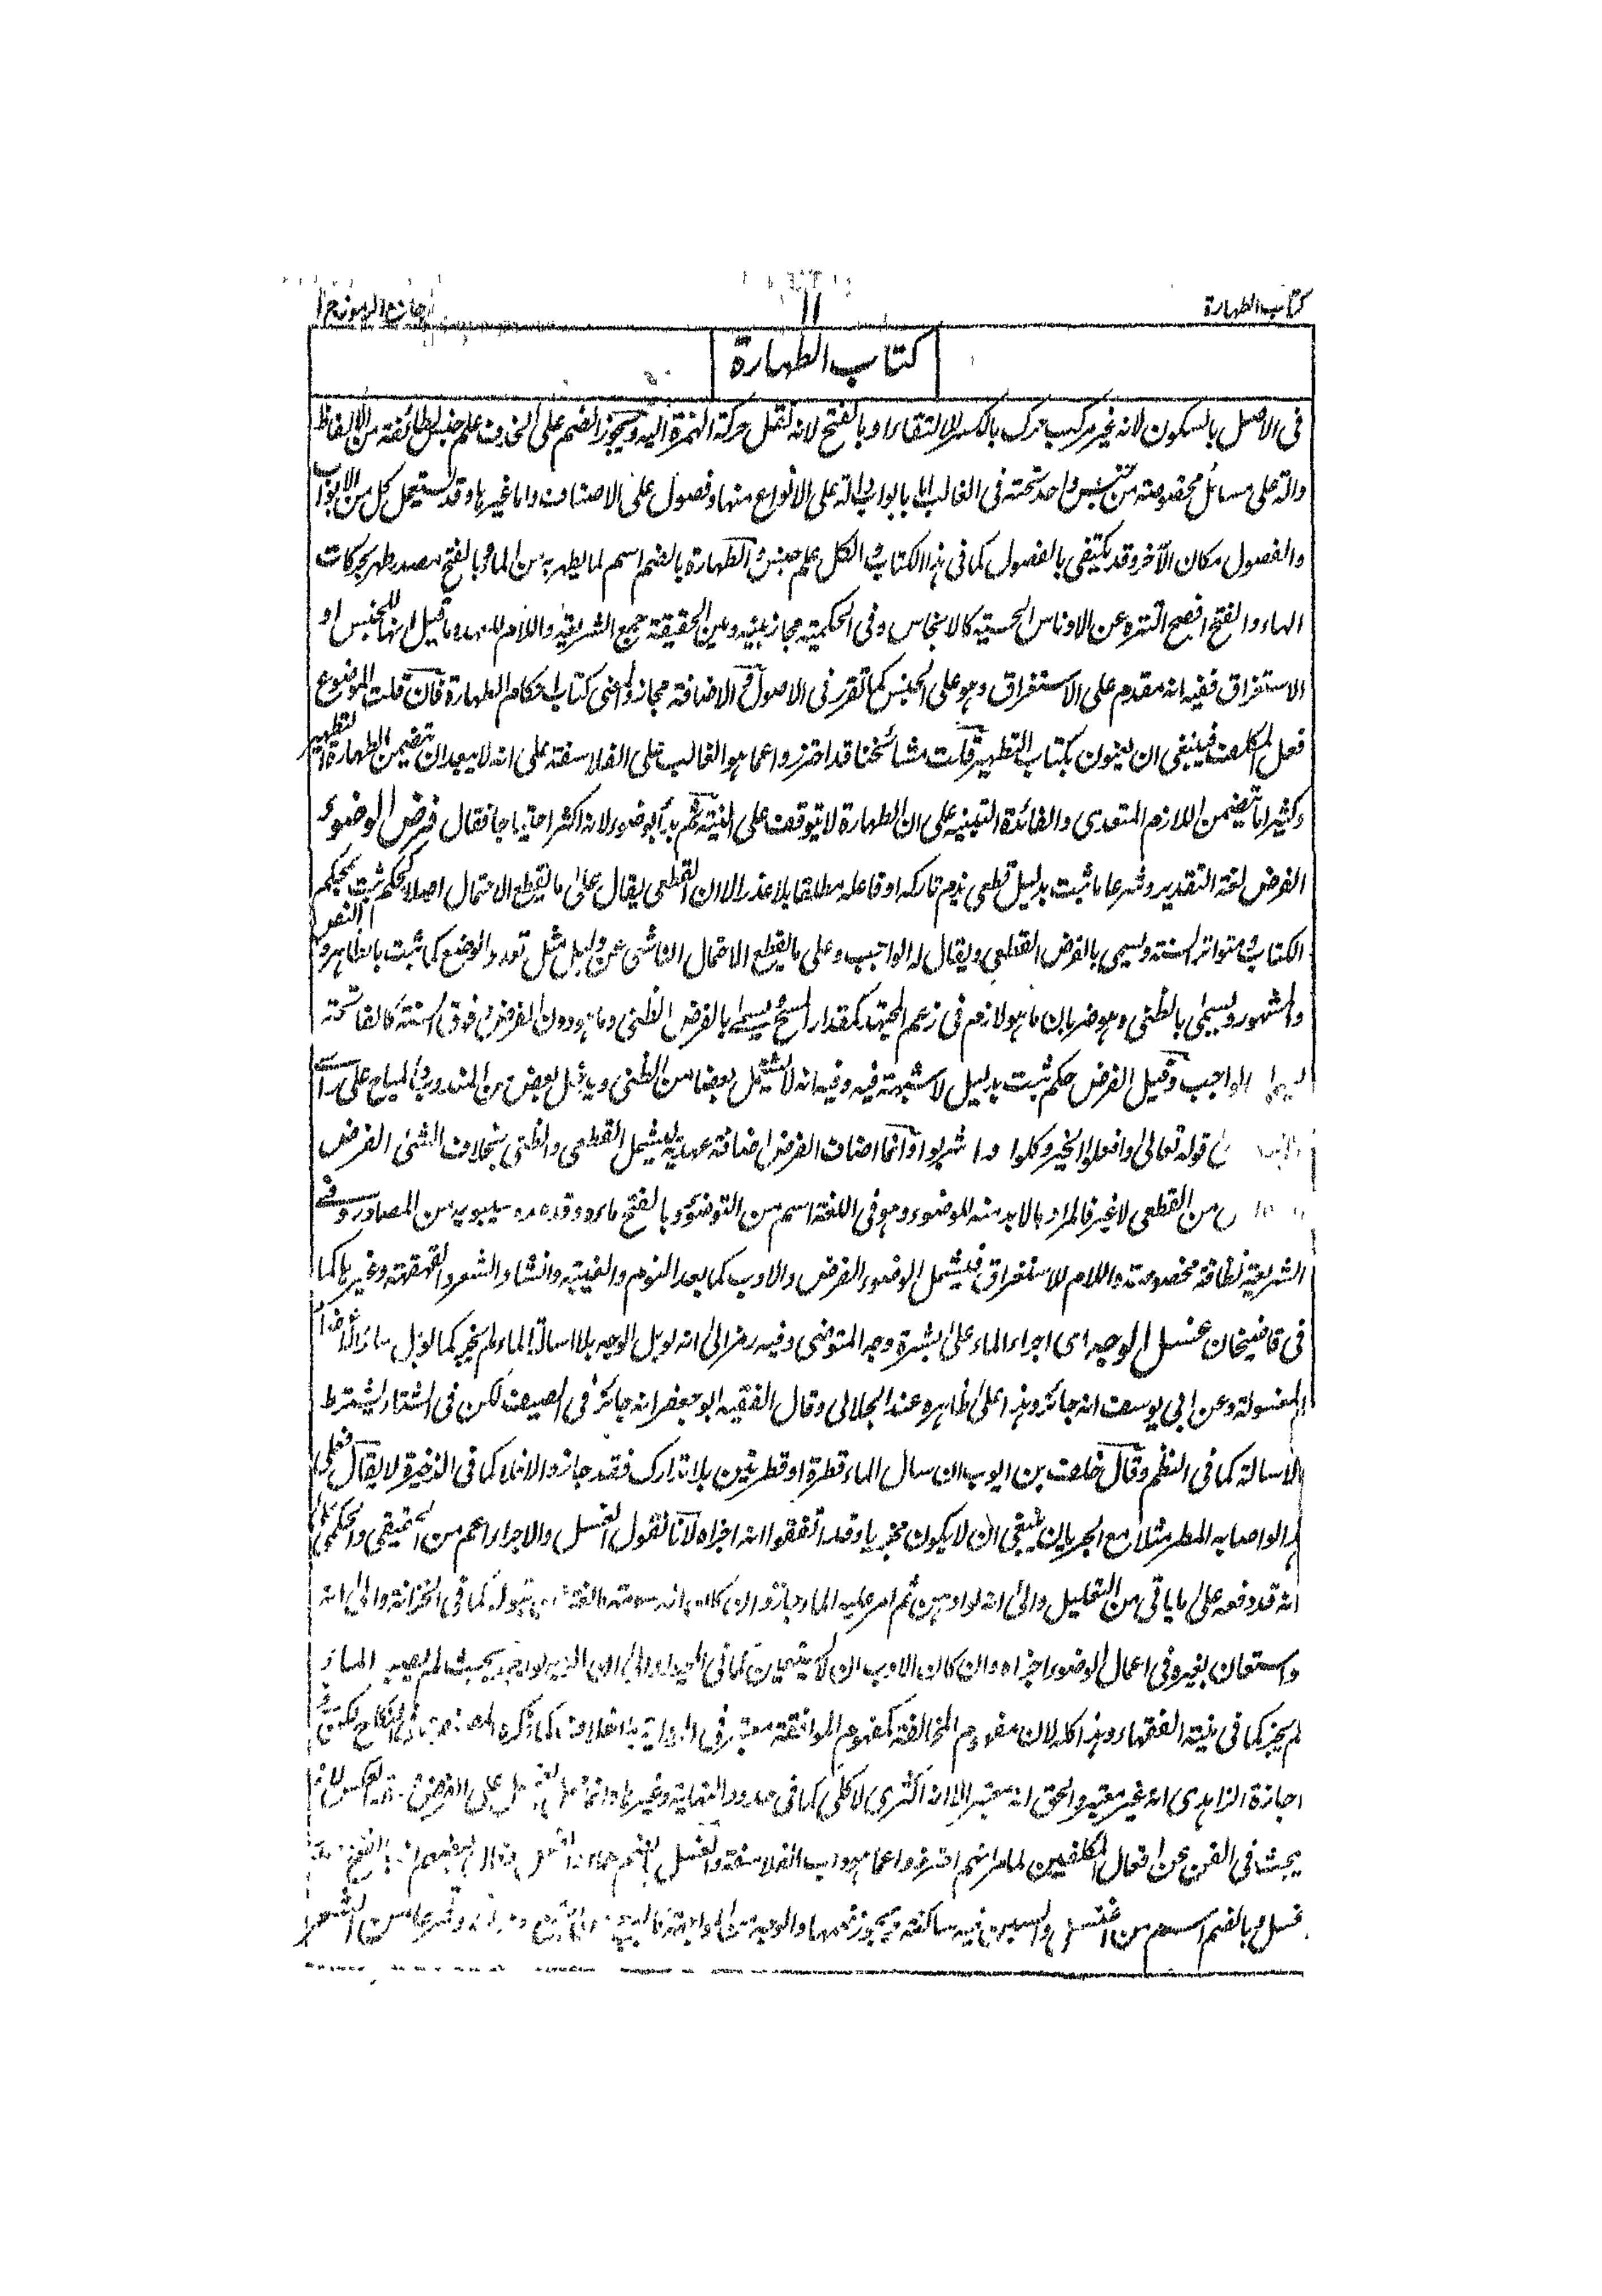 كتاب الطهارة
١١
جامع الرموز ج ١
كتاب الطهارة
فى الاصل بالسكون لانه غير مركب حرك بالكسر للالتقاء او بالفتح لانه نقل حركة الهمزة اليه ويجوز الضم على الحذف علم جنس لطائفة من الالفاظ
دالة على مسائل مخصوصة من جنس واحد تحته فى الغالب اما بابواب دالة على الانواع منها وفصول على الاصناف واما غيرها وقد يستعمل كل من الابواب
والفصول مكان الآخر وقد يكتفى بالفصول كما فى هذا الكتاب والكل علم جنس والطهارة بالضم اسم لما يطهر به من الماء وبالفتح مصدر طهر بحركات
الهاء والفتح افصح التنزه عن الادناس الحسية كالانجاس وفى الحكمية مجاز بينه وبين الحقيقة جمع الشريعة واللام للعهد وما قيل انها للجنس او
الاستغراق ففيه انه مقدم على الاستغراق وهو على الجنس كما تقرر فى الاصول وفى الاضافة مجاز والمعنى كتاب احكام الطهارة فان قلت الموضوع
فعل المكلف فينبغى ان يعنون بكتاب التطهير قلت مشائخنا قد احترزوا عما هو الغالب على الفلاسفة على انه لا يبعد ان تتضمن الطهارة التطهير
وكثيرا ما يتضمن اللازم المتعدى والفائدة التنبيه على ان الطهارة لا تتوقف على النية ثم بدأ بوضوء لانه اكثر احتياجا فقال فرض الوضوء
الفرض لغة التقدير وشرعا ما ثبت بدليل قطعى يذم تاركه او فاعله مطلقا بلا عذر الا ان القطعى يقال على ما يقطع الاحتمال اصلا كحكم ثبت بمحكم
الكتاب ومتواتر السنة ويسمى بالفرض القطعى ويقال له الواجب وعلى ما يقطع الاحتمال الناشى عن دليل مثل تعدد الوضع كما ثبت بالظاهر والنص
والمشهور ويسمى بالظنى وهو ضربان ما هو لازم فى زعم المجتهد كمقدار المسح يسمى بالفرض الظنى وما هو دون الفرض وفوق السنة كالفاتحة
الواجب وقيل الفرض حكم ثبت بدليل لا شبهة فيه وفيه انه لا يشتمل بعضا من الظنى ويدخل بعض من المندوب والمباح على رأى
قوله تعالى وافعلوا الخير وكلوا واشربوا وانما اضاف الفرض اضافة عهدية ليشمل القطعى والظنى بخلاف الشئ الفرض
من القطعى لا غير فالمراد بالا بد منه للوضوء وهو فى اللغة اسم من التوضؤ وبالفتح ماءه وقد عده سيبويه من المصادر وفى
الشريعة نظافة مخصوصة واللام للاستغراق فيشمل الوضوء الفرض والادب كما بعد النوم والغيبة وانشاد الشعر والقهقهة وغيرها كما
فى قاضيخان غسل الوجه اى اجراء الماء على بشرة وجه المتوضى وفيه رمز الى انه لو بل الوجه بلا اسالة الماء لم يجز كما لو بل سائر الاعضاء
المغسولة وعن ابى يوسف انه جائز وهذا على ظاهره عند الجلالى وقال الفقيه ابو جعفر انه جائز فى الصيف لكن فى الشتاء يشترط
الاسالة كما فى النظم وقال خلف بن ايوب ان سال الماء قطرة او قطرتين بلا تدارك فقد جاز والا فلا كما فى الذخيرة لا يقال فعلى
هذا لو اصابه المطر مثلا مع الجريان ينبغى ان لا يكون مجزيا وقد اتفقوا انه اجزاه لانا نقول الغسل والاجراء اعم من الحقيقى والحكمى على
انه قد دفعه على ما ياتى من التحليل والى انه لو ادهن ثم امر عليه الماء جاز وان كان كما فى الخزانة والى انه
واستعان بغيره فى اعمال الوضوء اجزاه وان كان الادب ان لا يستعين كما فى
لم يجز كما فى منية الفقهاء وهذا كله لان مفهوم المخالفة كمفهوم الموافقة معتبر فى الرواية بلا خلاف كما ذكره المصنف فى النكاح لكن فى
اجازة الزاهدى انه غير معتبر والحق انه معتبر الا انه اكثرى لا كلى كما فى حدود النهاية وغيرها
يبحث فى الفن عن افعال المكلفين لما مر انهم احترزوا عما هو داب الفلاسفة والغسل
غسل وبالضم اسم من الغسل والسين فيه ساكنة ويجوز ضمها